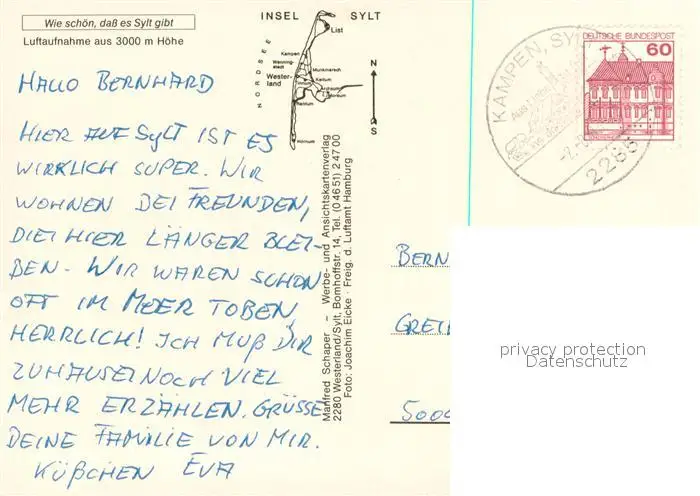 Wie schön, daß es Sylt gibt
Luftaufnahme aus 3000 m Höhe
INSEL SYLT
NORDSEE
List
Kampen
Wenning-
stedt
Munkmarsch
Wester-
land
Keitum
Archsum
Morsum
Rantum
Hörnum
N
S
HALLO BERNHARD
HIER AUF SYLT IST ES
WIRKLICH SUPER. WIR
WOHNEN BEI FREUNDEN,
DIE HIER LÄNGER BLEI-
BEN. WIR WAREN SCHON
OFT IM MEER TOBEN,
HERRLICH! ICH MUß DIR
ZUHAUSE NOCH VIEL
MEHR ERZÄHLEN. GRÜSSE
DEINE FAMILIE VON MIR.
KÜßCHEN EVA
Manfred Schaper – Werbe- und Ansichtskartenverlag
2280 Westerland/Sylt, Bomhoffstr. 14, Tel. (04651) 24700
Foto: Joachim Eicke · Freig. d. Luftamt Hamburg
DEUTSCHE BUNDESPOST
60
KAMPEN, SY
2285
BERN
privacy protection
Datenschutz